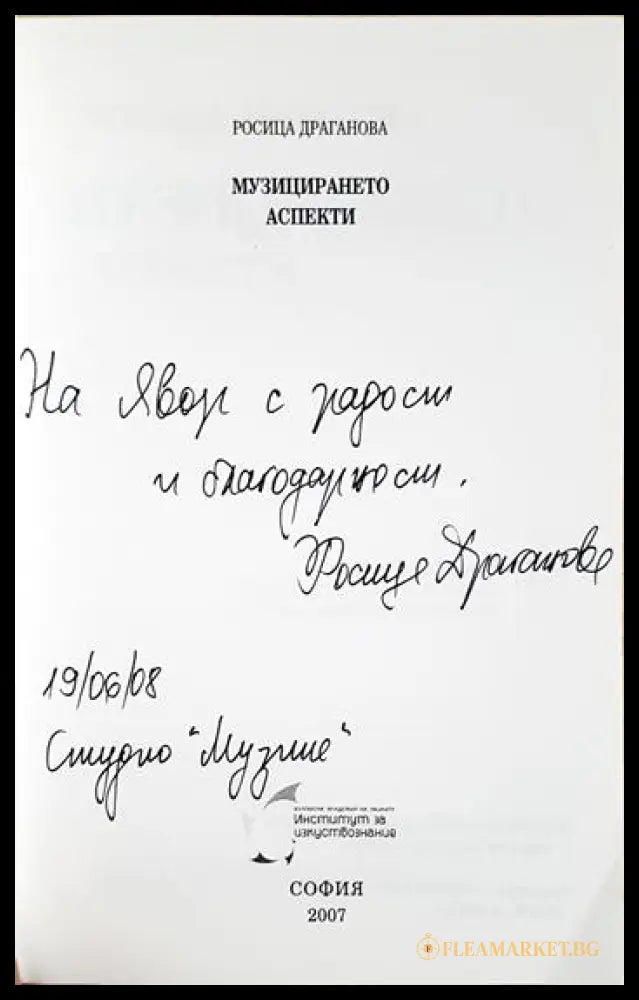 РОСИЦА ДРАГАНОВА
МУЗИЦИРАНЕТО
АСПЕКТИ
На Явор с радост
и благодарност.
Росица Драганова
19/06/08
Студио "Музите"
БЪЛГАРСКА АКАДЕМИЯ НА НАУКИТЕ
Институт за
изкуствознание
СОФИЯ
2007
FLEAMARKET.BG